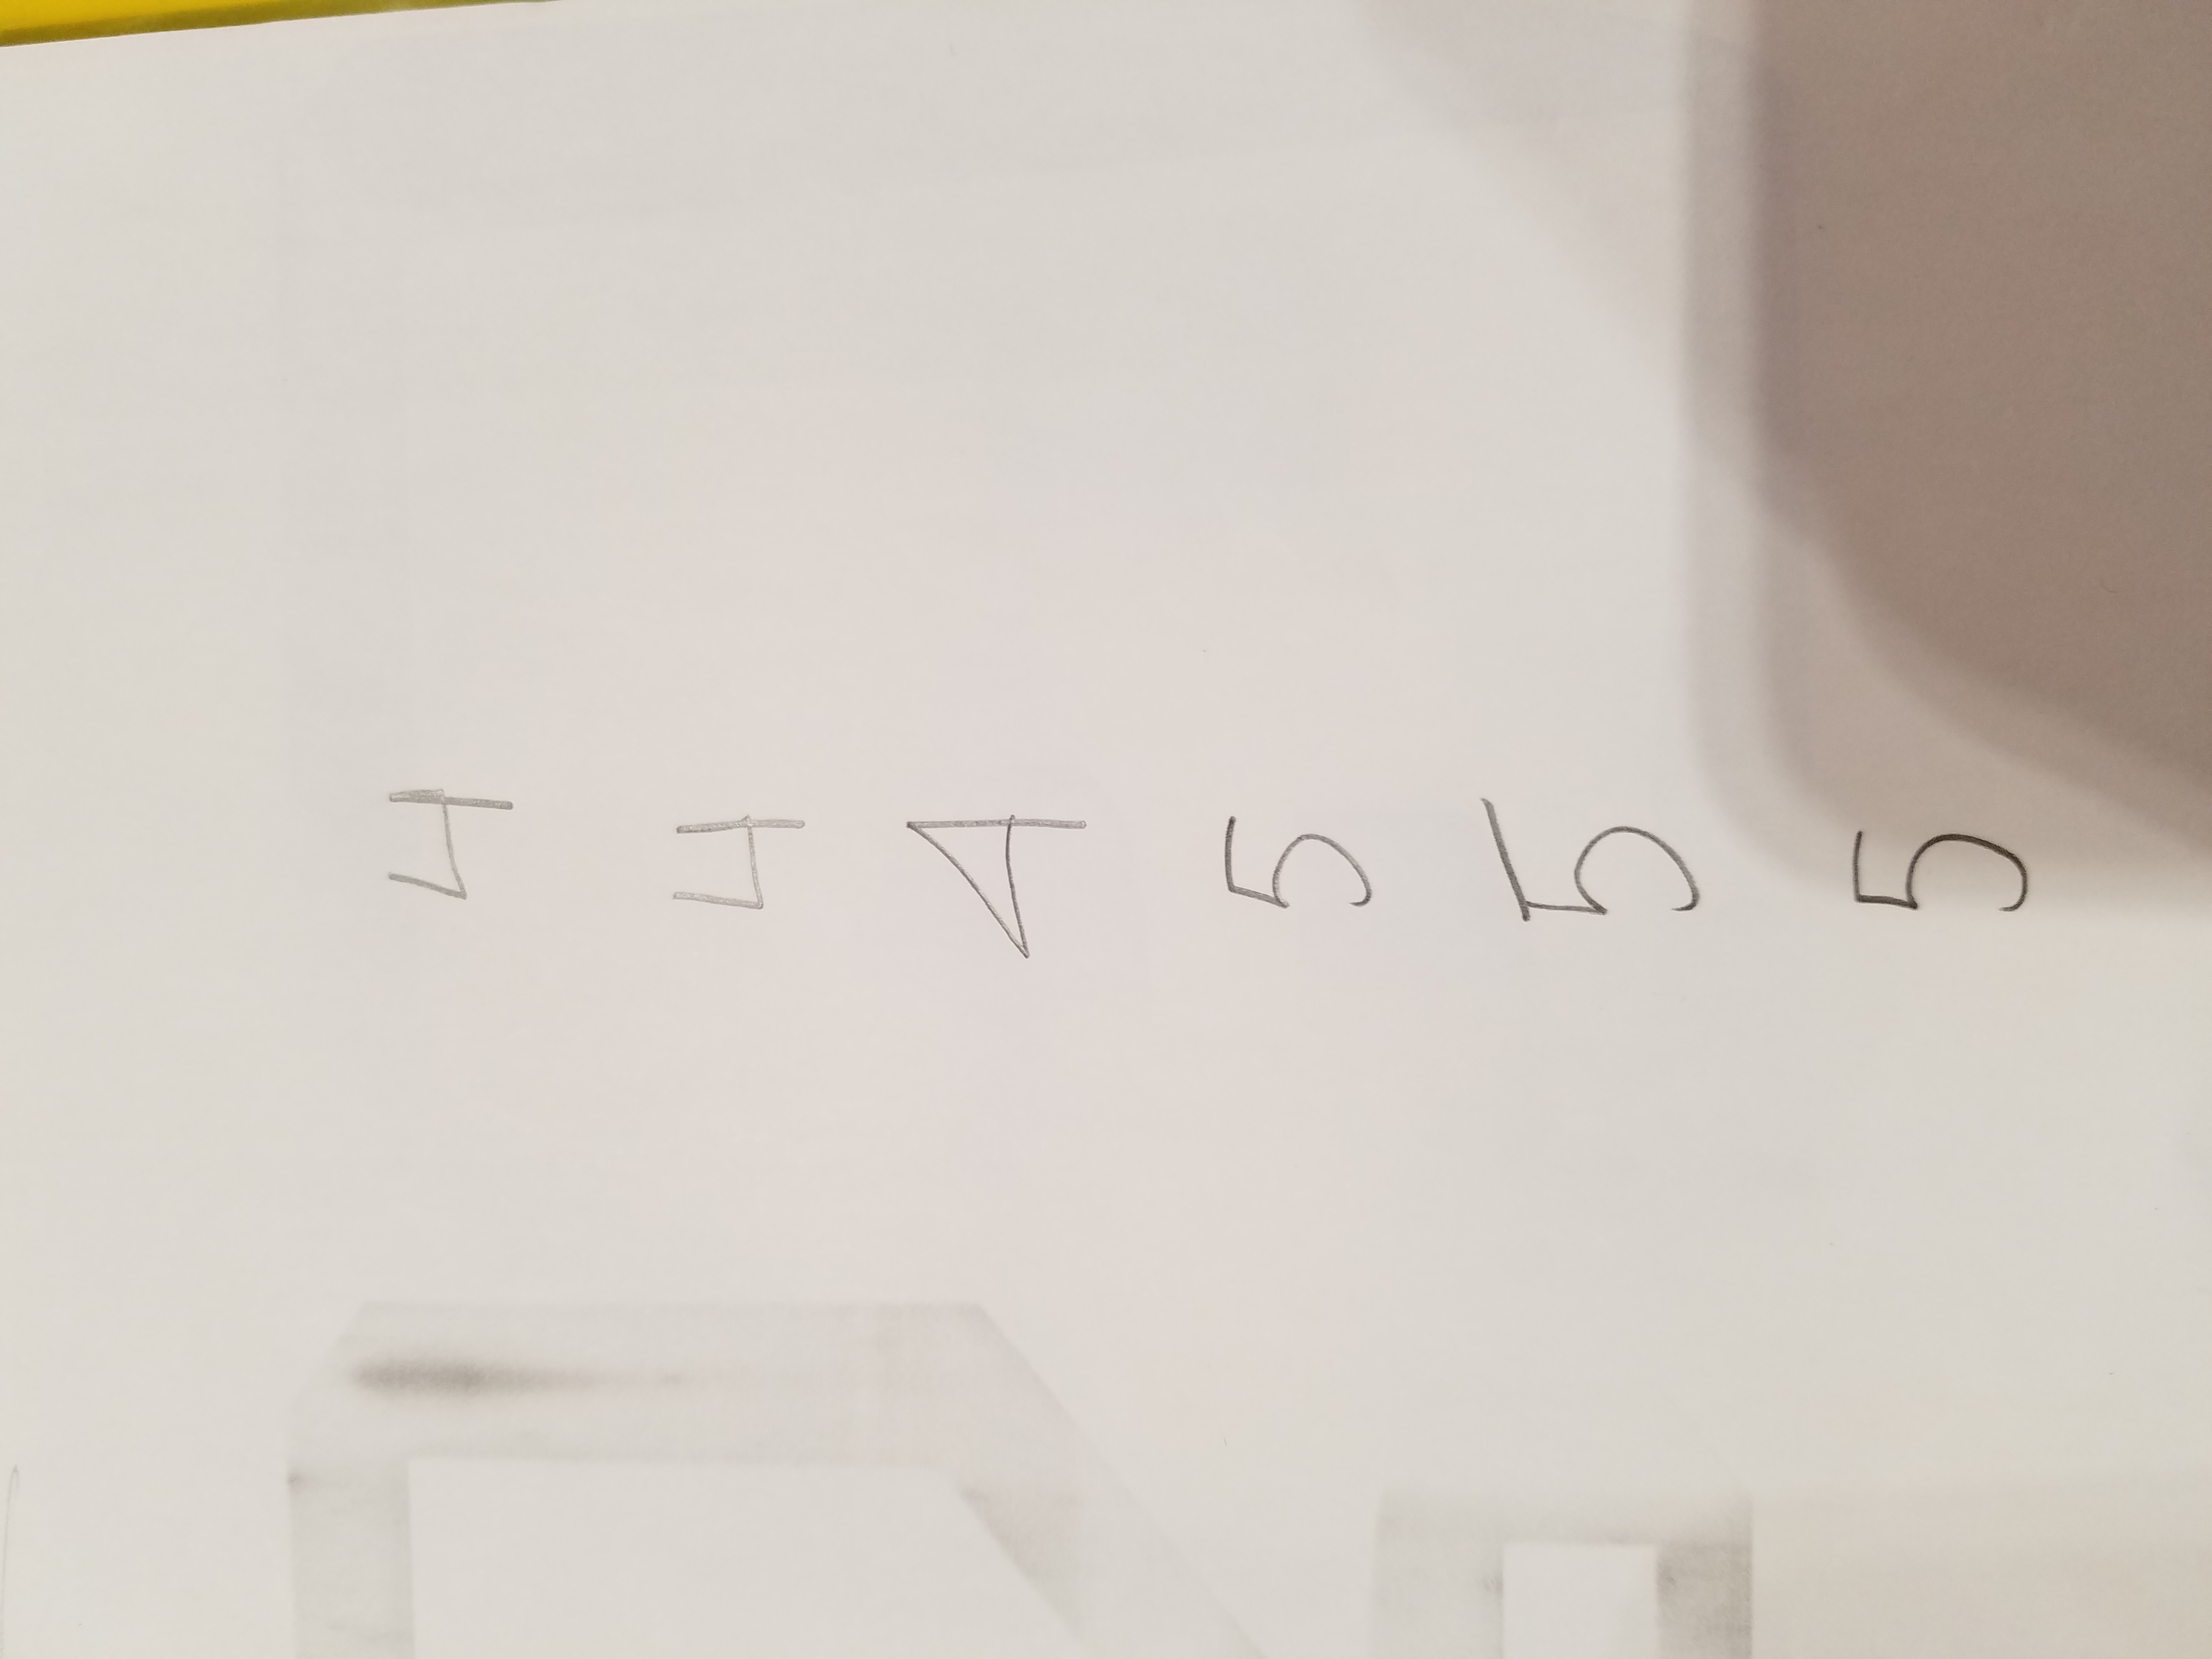 4
4
4
5
5
5